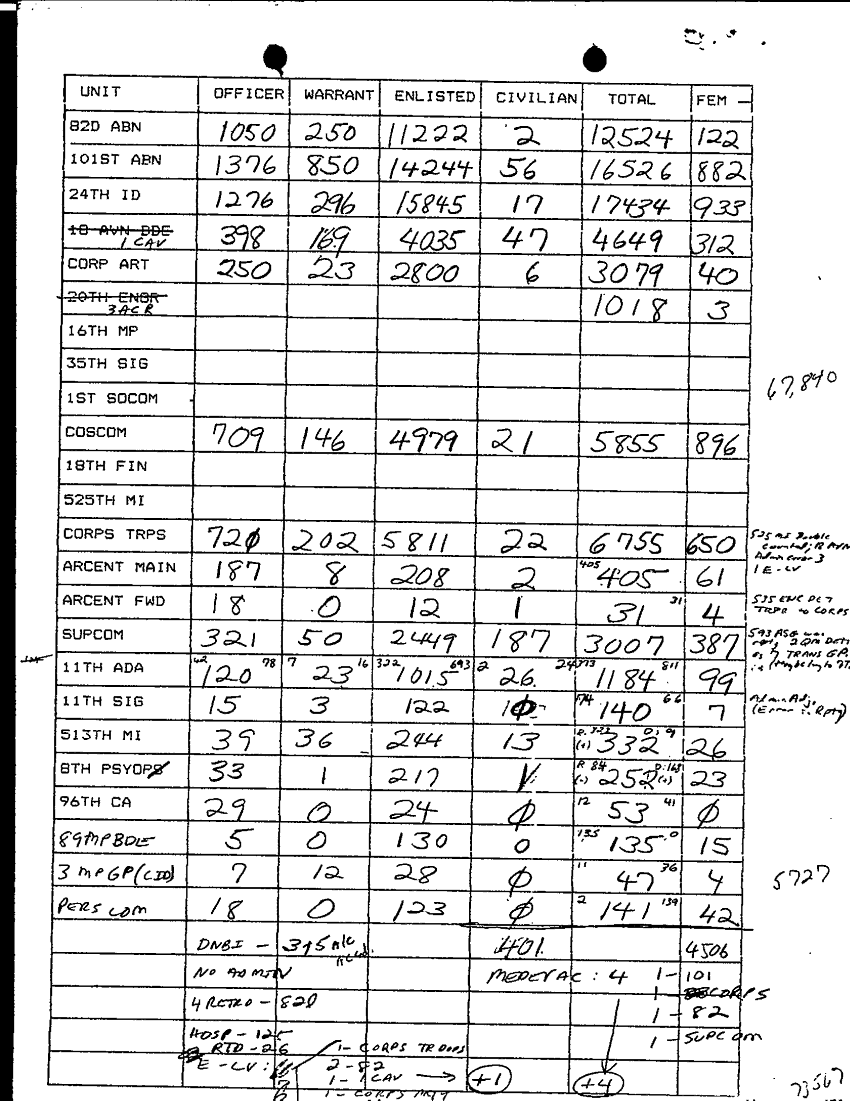 UNIT OFFICER WARRANT ENLISTED CIVILIAN TOTAL FEM -
82D ABN 1050 250 11222 2 12524 122
101ST ABN 1376 850 14244 56 16526 882
24TH ID 1276 296 15845 17 17434 933
18 AVN BDE
1 CAV 398 169 4035 47 4649 312
CORP ART 250 23 2800 6 3079 40
20TH ENGR
3 ACR 1018 3
16TH MP
35TH SIG
67,840
1ST SOCOM
COSCOM 709 146 4979 21 5855 896
18TH FIN
525TH MI
CORPS TRPS 720 202 5811 22 6755 650
ARCENT MAIN 187 8 208 2 405 405 61
1 E-LV
ARCENT FWD 18 0 12 1 31 31 4
TRPS to CORPS
SUPCOM 321 50 2449 187 3007 387
7 TRANS GP.
11TH ADA 42 120 78 7 23 16 322 1015 693 2 26 24 373 1184 811 99
11TH SIG 15 3 122 174 140 66 7
Admin Adj.
(Error in Rptg)
513TH MI 39 36 244 13 (+) 332 26
8TH PSYOPS 33 1 217 R 84 (-) 252 D:168 (+) 23
96TH CA 29 0 24 Ø 12 53 41 Ø
89 MP BDE 5 0 130 0 135 135 0 15
3 MP GP (CID) 7 12 28 Ø 11 47 36 4
5727
PERSCOM 18 0 123 Ø 2 141 139 42
DNBI - 395 401 4506
NO ADMIN MEDEVAC : 4 1 - 101
1 - CORPS
4 RETRO - 820 1 - 82
HOSP - 125 1 - SUPCOM
RTD - 26 1 - CORPS TROOPS
E-LV : 2 - 82
1 - 1 CAV → +1 +4
73567